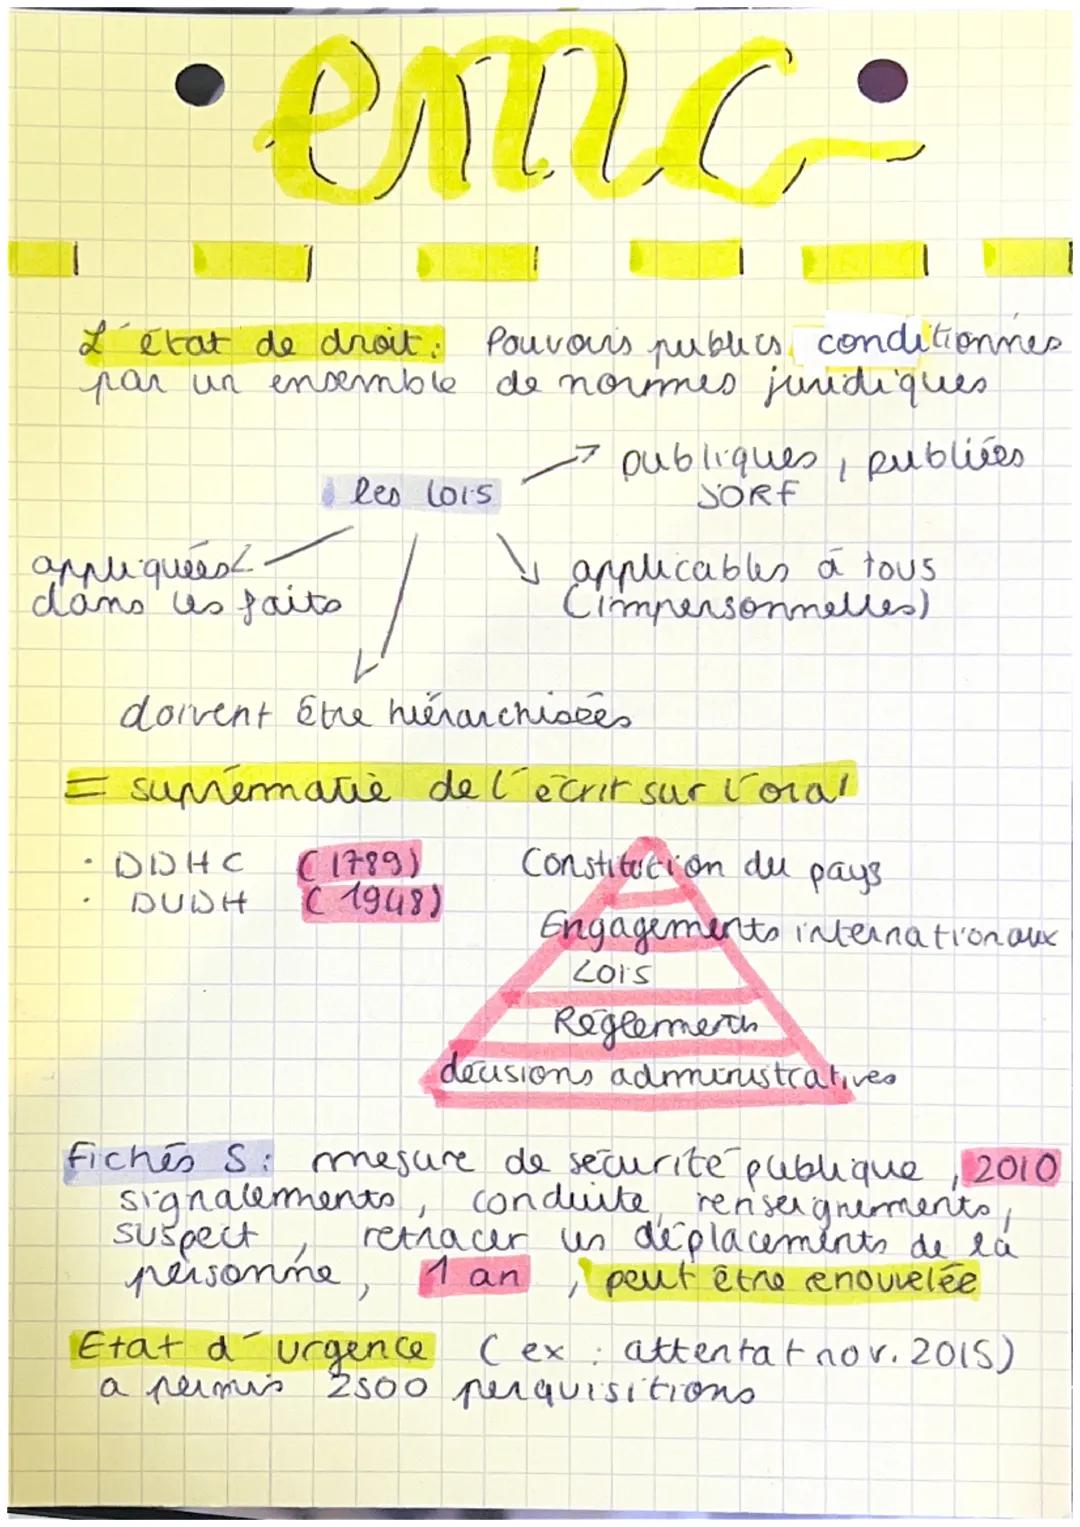 emc
L'état de droit : Pouvoirs publics conditionnés
par un ensemble de normes juridiques
publiques, publiées
JORF
les lois
appliquées
dans les faits
applicables à tous
(impersonnelles)
doivent être hiérarchisées
= suprématie de l'écrit sur l'oral
• DDHC (1789)
• DUDH (1948)
Constitution du pays
Engagements internationaux
Lois
Réglements
décisions administratives
Fichés S : mesure de sécurité publique, 2010
signalements, conduite, renseignements,
suspect, retracer les déplacements de la
personne, 1 an, peut être renouvelée
Etat d'urgence (ex : attentat nov. 2015)
a permis 2500 perquisitions